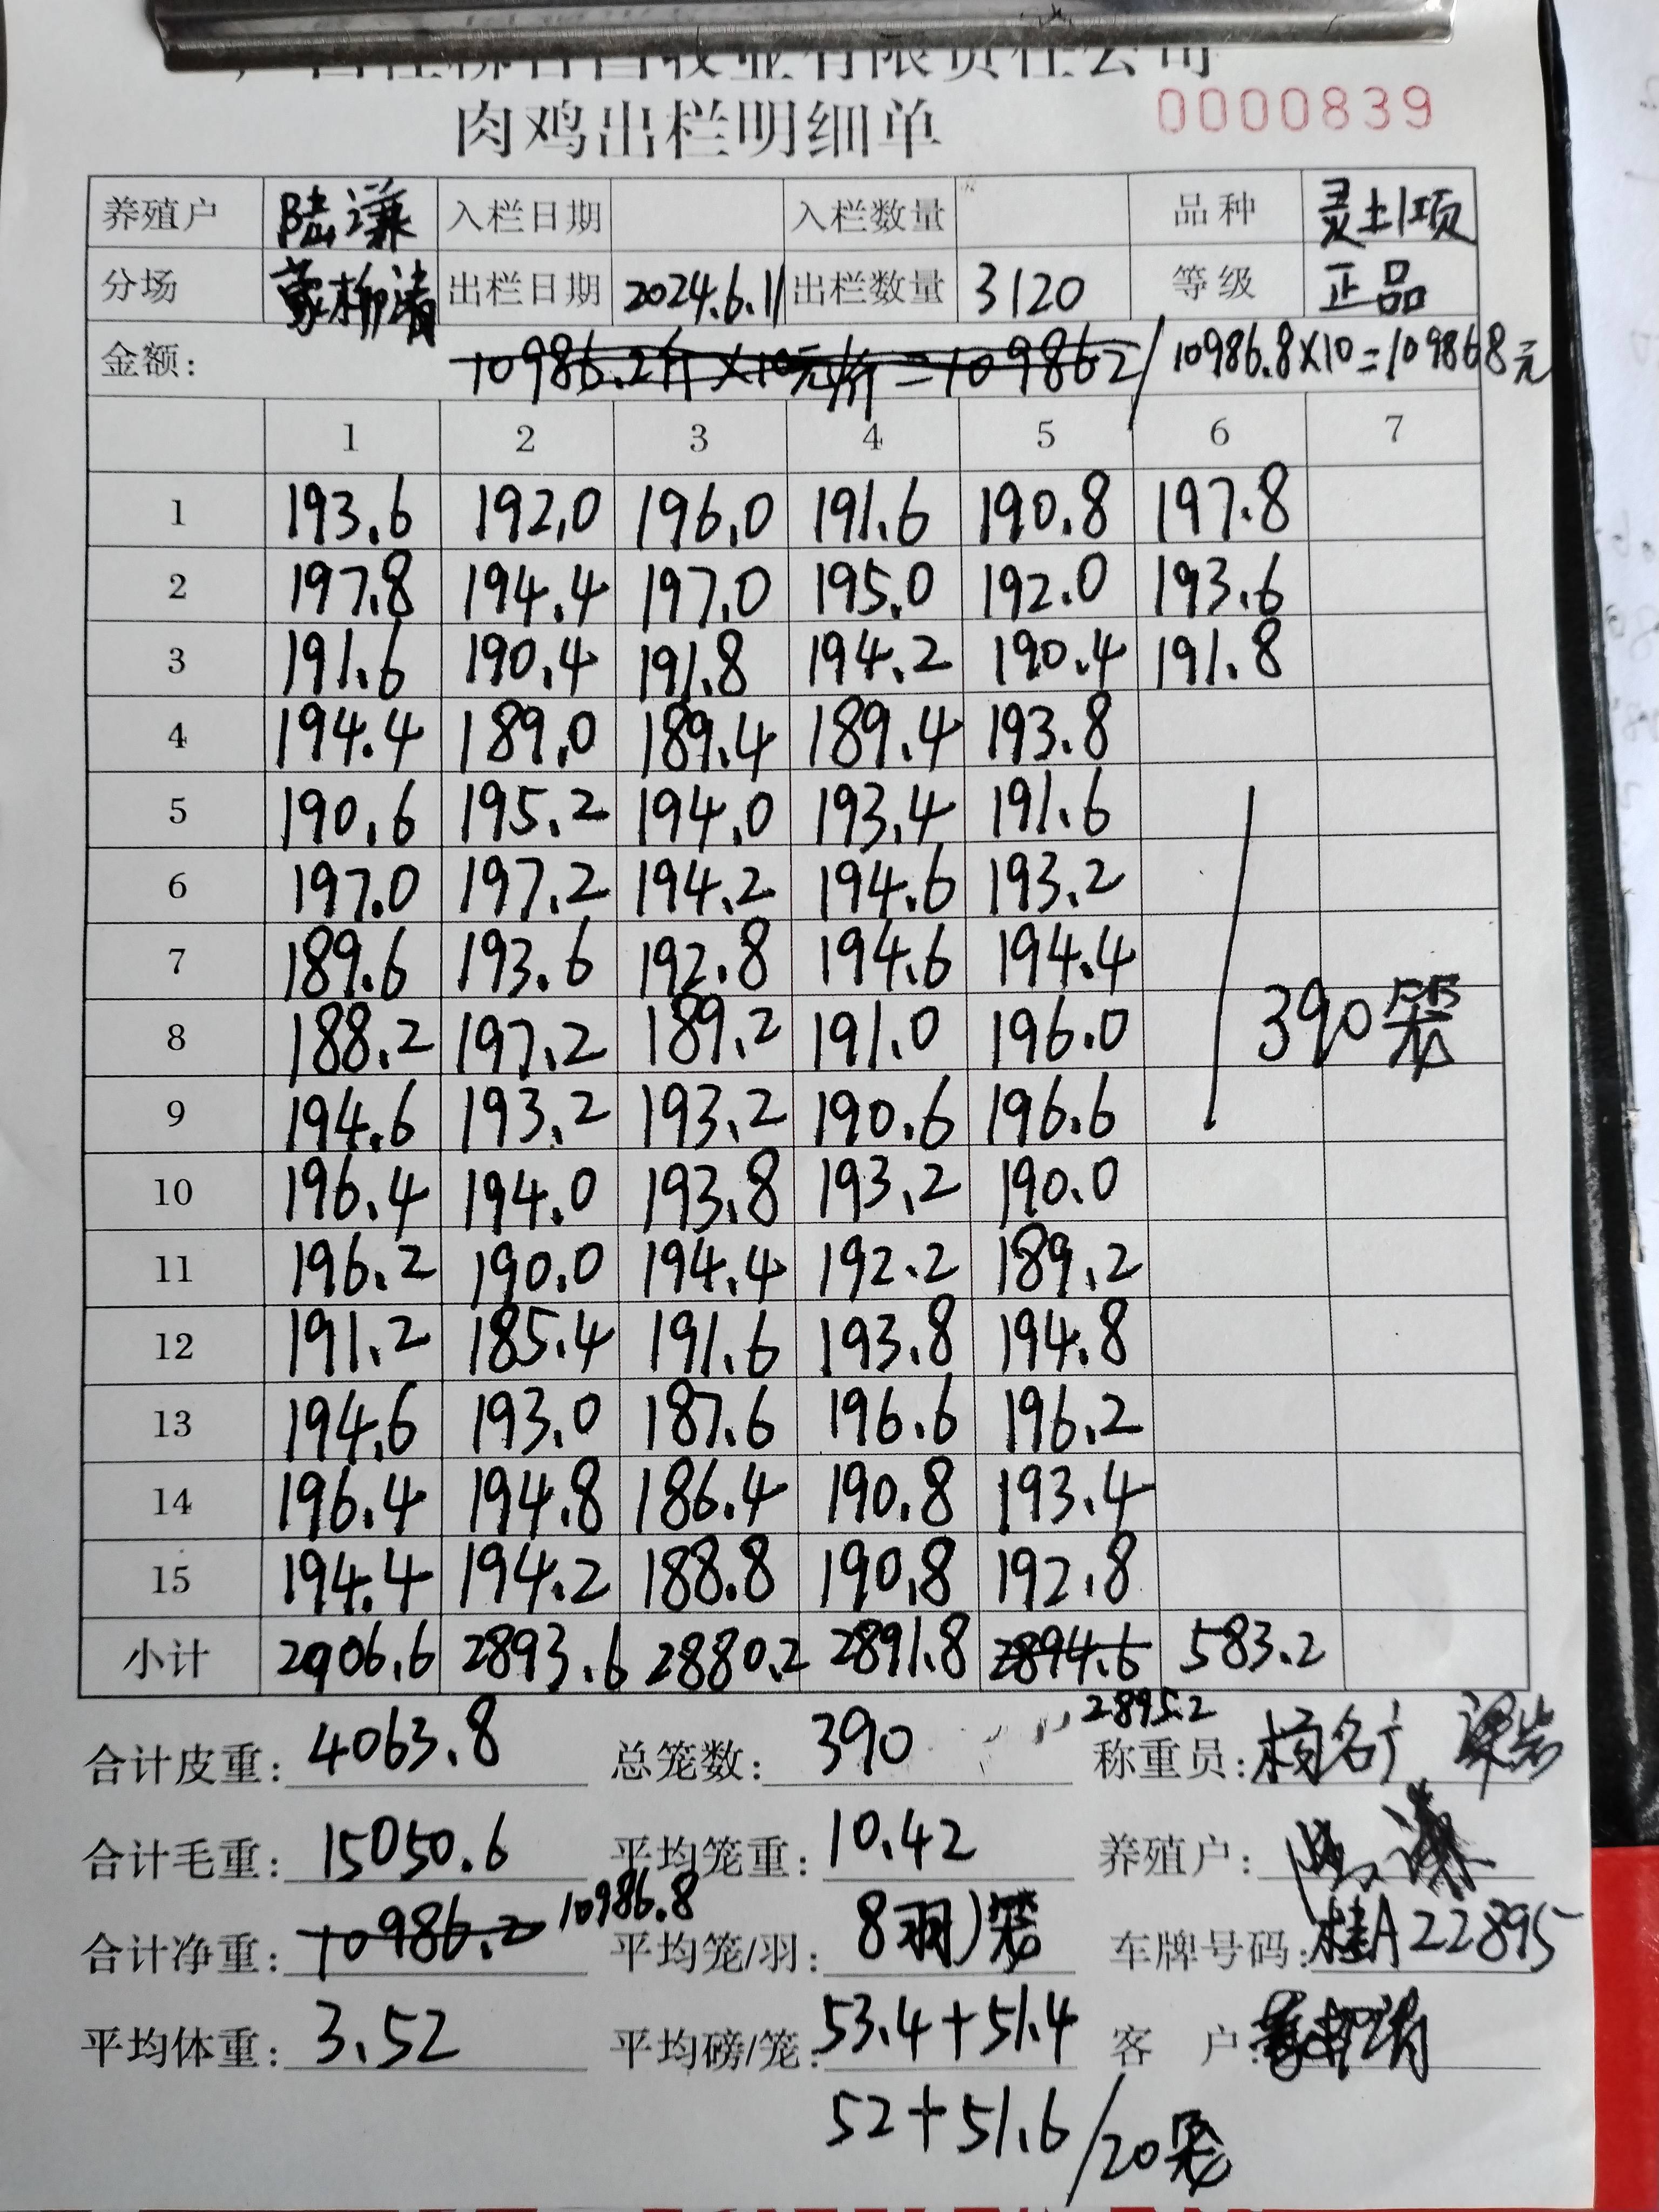 肉鸡出栏明细单 0000839
养殖户 陆谦 入栏日期 入栏数量 品种 灵土1项
分场 蒙柳清 出栏日期 2024.6.11 出栏数量 3120 等级 正品
金额: 10986.2斤×10元/斤=109862 / 10986.8×10=109868元
1 2 3 4 5 6 7
1 193.6 192.0 196.0 191.6 190.8 197.8
2 197.8 194.4 197.0 195.0 192.0 193.6
3 191.6 190.4 191.8 194.2 190.4 191.8
4 194.4 189.0 189.4 189.4 193.8
5 190.6 195.2 194.0 193.4 191.6
6 197.0 197.2 194.2 194.6 193.2
7 189.6 193.6 192.8 194.6 194.4
8 188.2 197.2 189.2 191.0 196.0 390笼
9 194.6 193.2 193.2 190.6 196.6
10 196.4 194.0 193.8 193.2 190.0
11 196.2 190.0 194.4 192.2 189.2
12 191.2 185.4 191.6 193.8 194.8
13 194.6 193.0 187.6 196.6 196.2
14 196.4 194.8 186.4 190.8 193.4
15 194.4 194.2 188.8 190.8 192.8
小计 2906.6 2893.6 2880.2 2891.8 2894.6 583.2
2895.2
合计皮重: 4063.8 总笼数: 390 称重员:
合计毛重: 15050.6 平均笼重: 10.42 养殖户:
合计净重: 10986.2 10986.8 平均笼/羽: 8羽/笼 车牌号码: 桂A22895
平均体重: 3.52 平均磅/笼: 53.4+51.4 客 户:
52+51.6/20笼